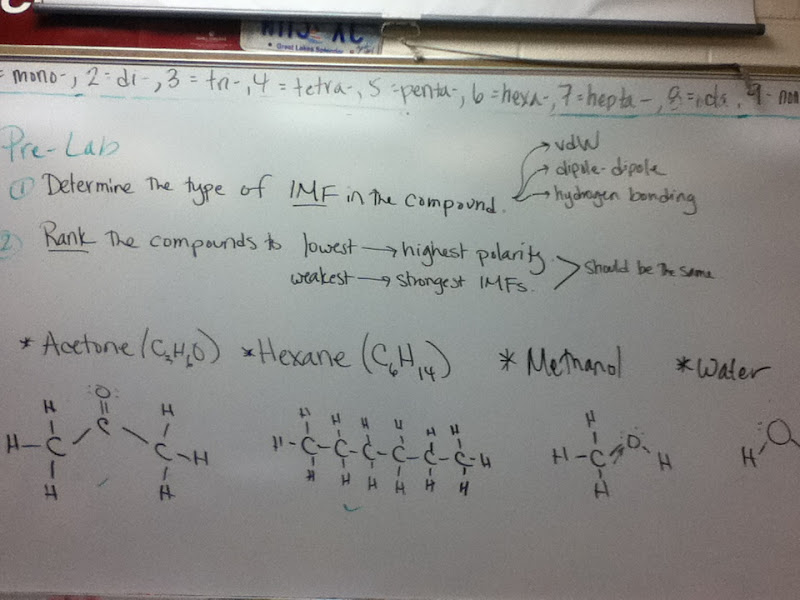 Great Lakes Splendor
= mono-, 2 = di-, 3 = tri-, 4 = tetra-, 5 = penta-, 6 = hexa-, 7 = hepta-, 8 = octa, 9 - non
Pre-Lab
① Determine the type of IMF in the compound.
→ vdW
→ dipole-dipole
→ hydrogen bonding
2 Rank the compounds to lowest → highest polarity.
weakest → strongest IMFs.
should be the same
* Acetone (C3H6O) * Hexane (C6H14) * Methanol * Water
:O:
H H H H H H H H H
H-C C C-H H-C-C-C-C-C-C-H H-C O H H O
H H H H H H H H H